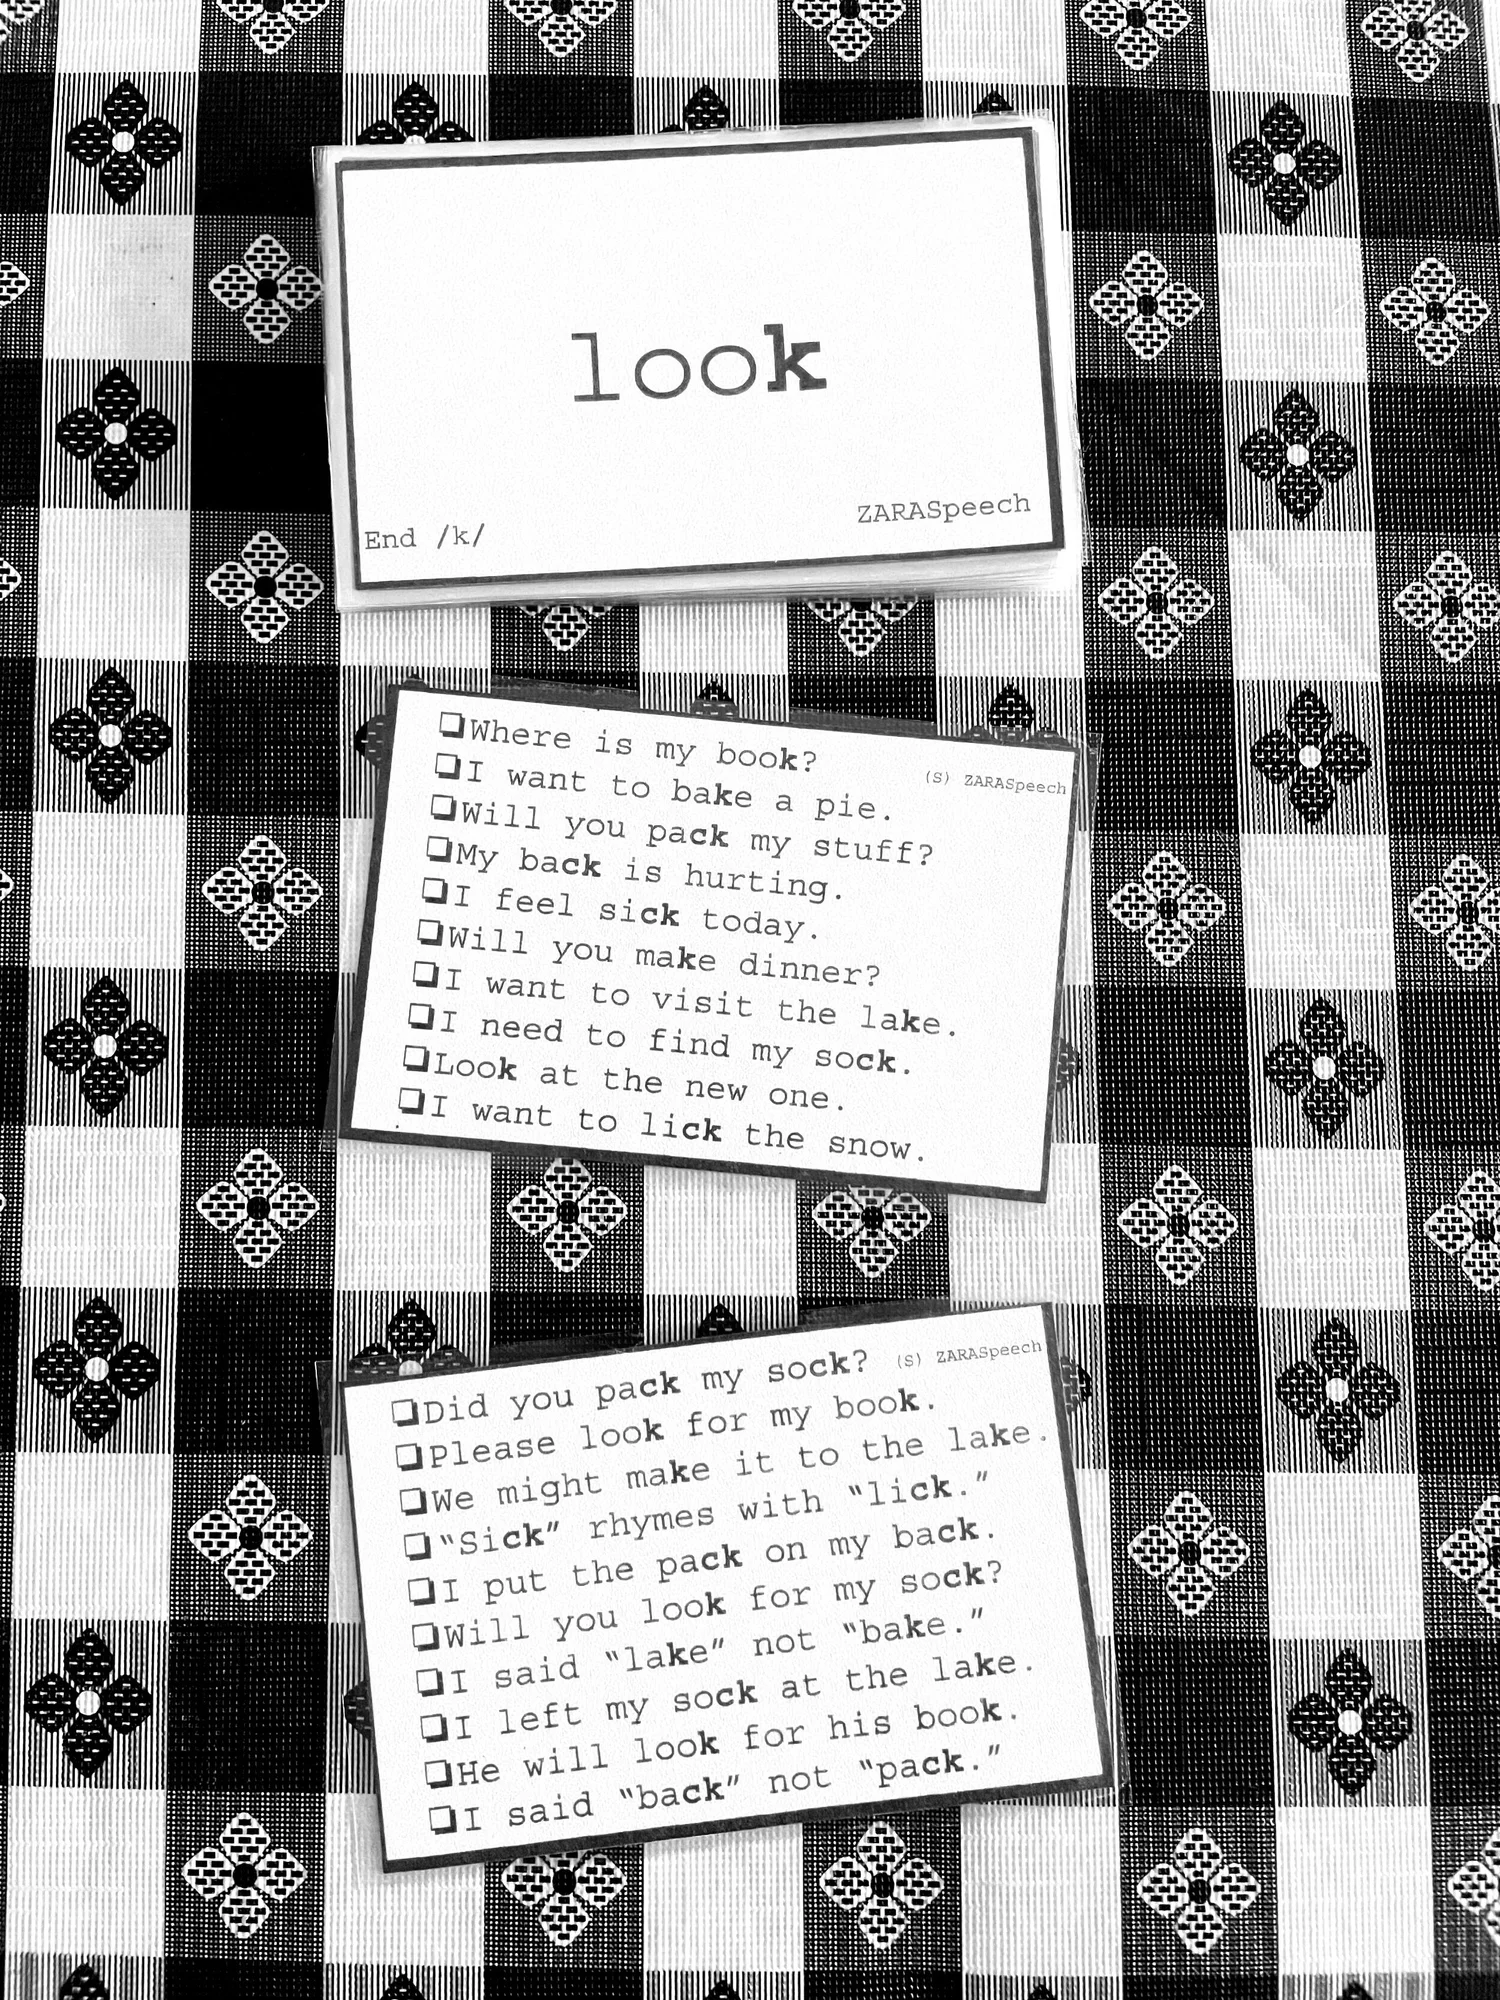 look
End /k/
ZARASpeech
❏Where is my book?
(S) ZARASpeech
❏I want to bake a pie.
❏Will you pack my stuff?
❏My back is hurting.
❏I feel sick today.
❏Will you make dinner?
❏I want to visit the lake.
❏I need to find my sock.
❏Look at the new one.
❏I want to lick the snow.
❏Did you pack my sock? (S) ZARASpeech
❏Please look for my book.
❏We might make it to the lake.
❏“Sick” rhymes with “lick.”
❏I put the pack on my back.
❏Will you look for my sock?
❏I said “lake” not “bake.”
❏I left my sock at the lake.
❏He will look for his book.
❏I said “back” not “pack.”